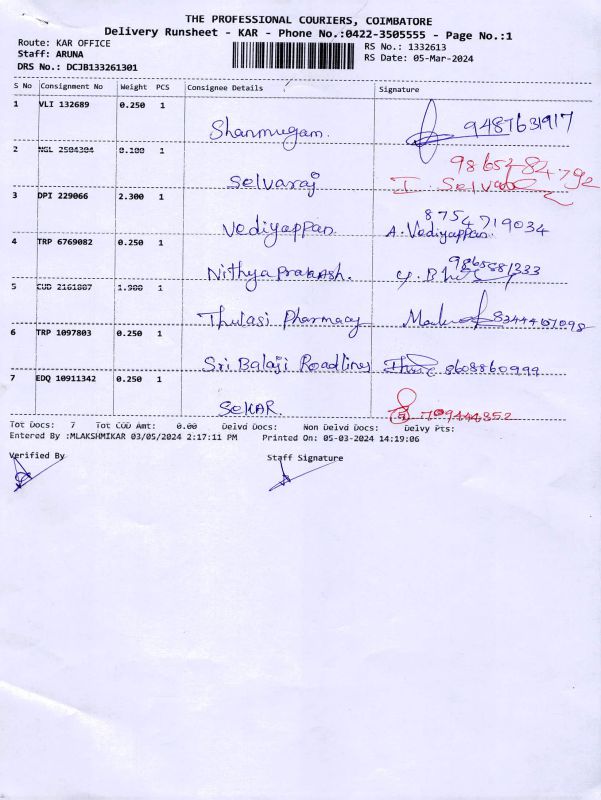 THE PROFESSIONAL COURIERS, COIMBATORE
Delivery Runsheet - KAR - Phone No.:0422-3505555 - Page No.:1
Route: KAR OFFICE
RS No.: 1332613
Staff: ARUNA
RS Date: 05-Mar-2024
DRS No.: DCJB133261301
S No Consignment No Weight PCS Consignee Details Signature
1 VLI 132689 0.250 1
Shanmugam. 9487631917
2 NGL 2504304 0.100 1
Selvaraj 98652 84792
I. Selva
3 DPI 229066 2.300 1
Vediyappan. 8754719034
A. Vediyappan.
4 TRP 6769082 0.250 1
Nithyaprakash. 9865881333
5 CUD 2161007 1.900 1
Thulasi Pharmacy 8344467098
6 TRP 1097803 0.250 1
Sri Balaji Roadlines 8608860999
7 EDQ 10911342 0.250 1
SEKAR. 709444352
Tot Docs: 7 Tot COD Amt: 0.00 Delvd Docs: Non Delvd Docs: Delvy Pts:
Entered By :MLAKSHMIKAR 03/05/2024 2:17:11 PM Printed On: 05-03-2024 14:19:06
Verified By Staff Signature